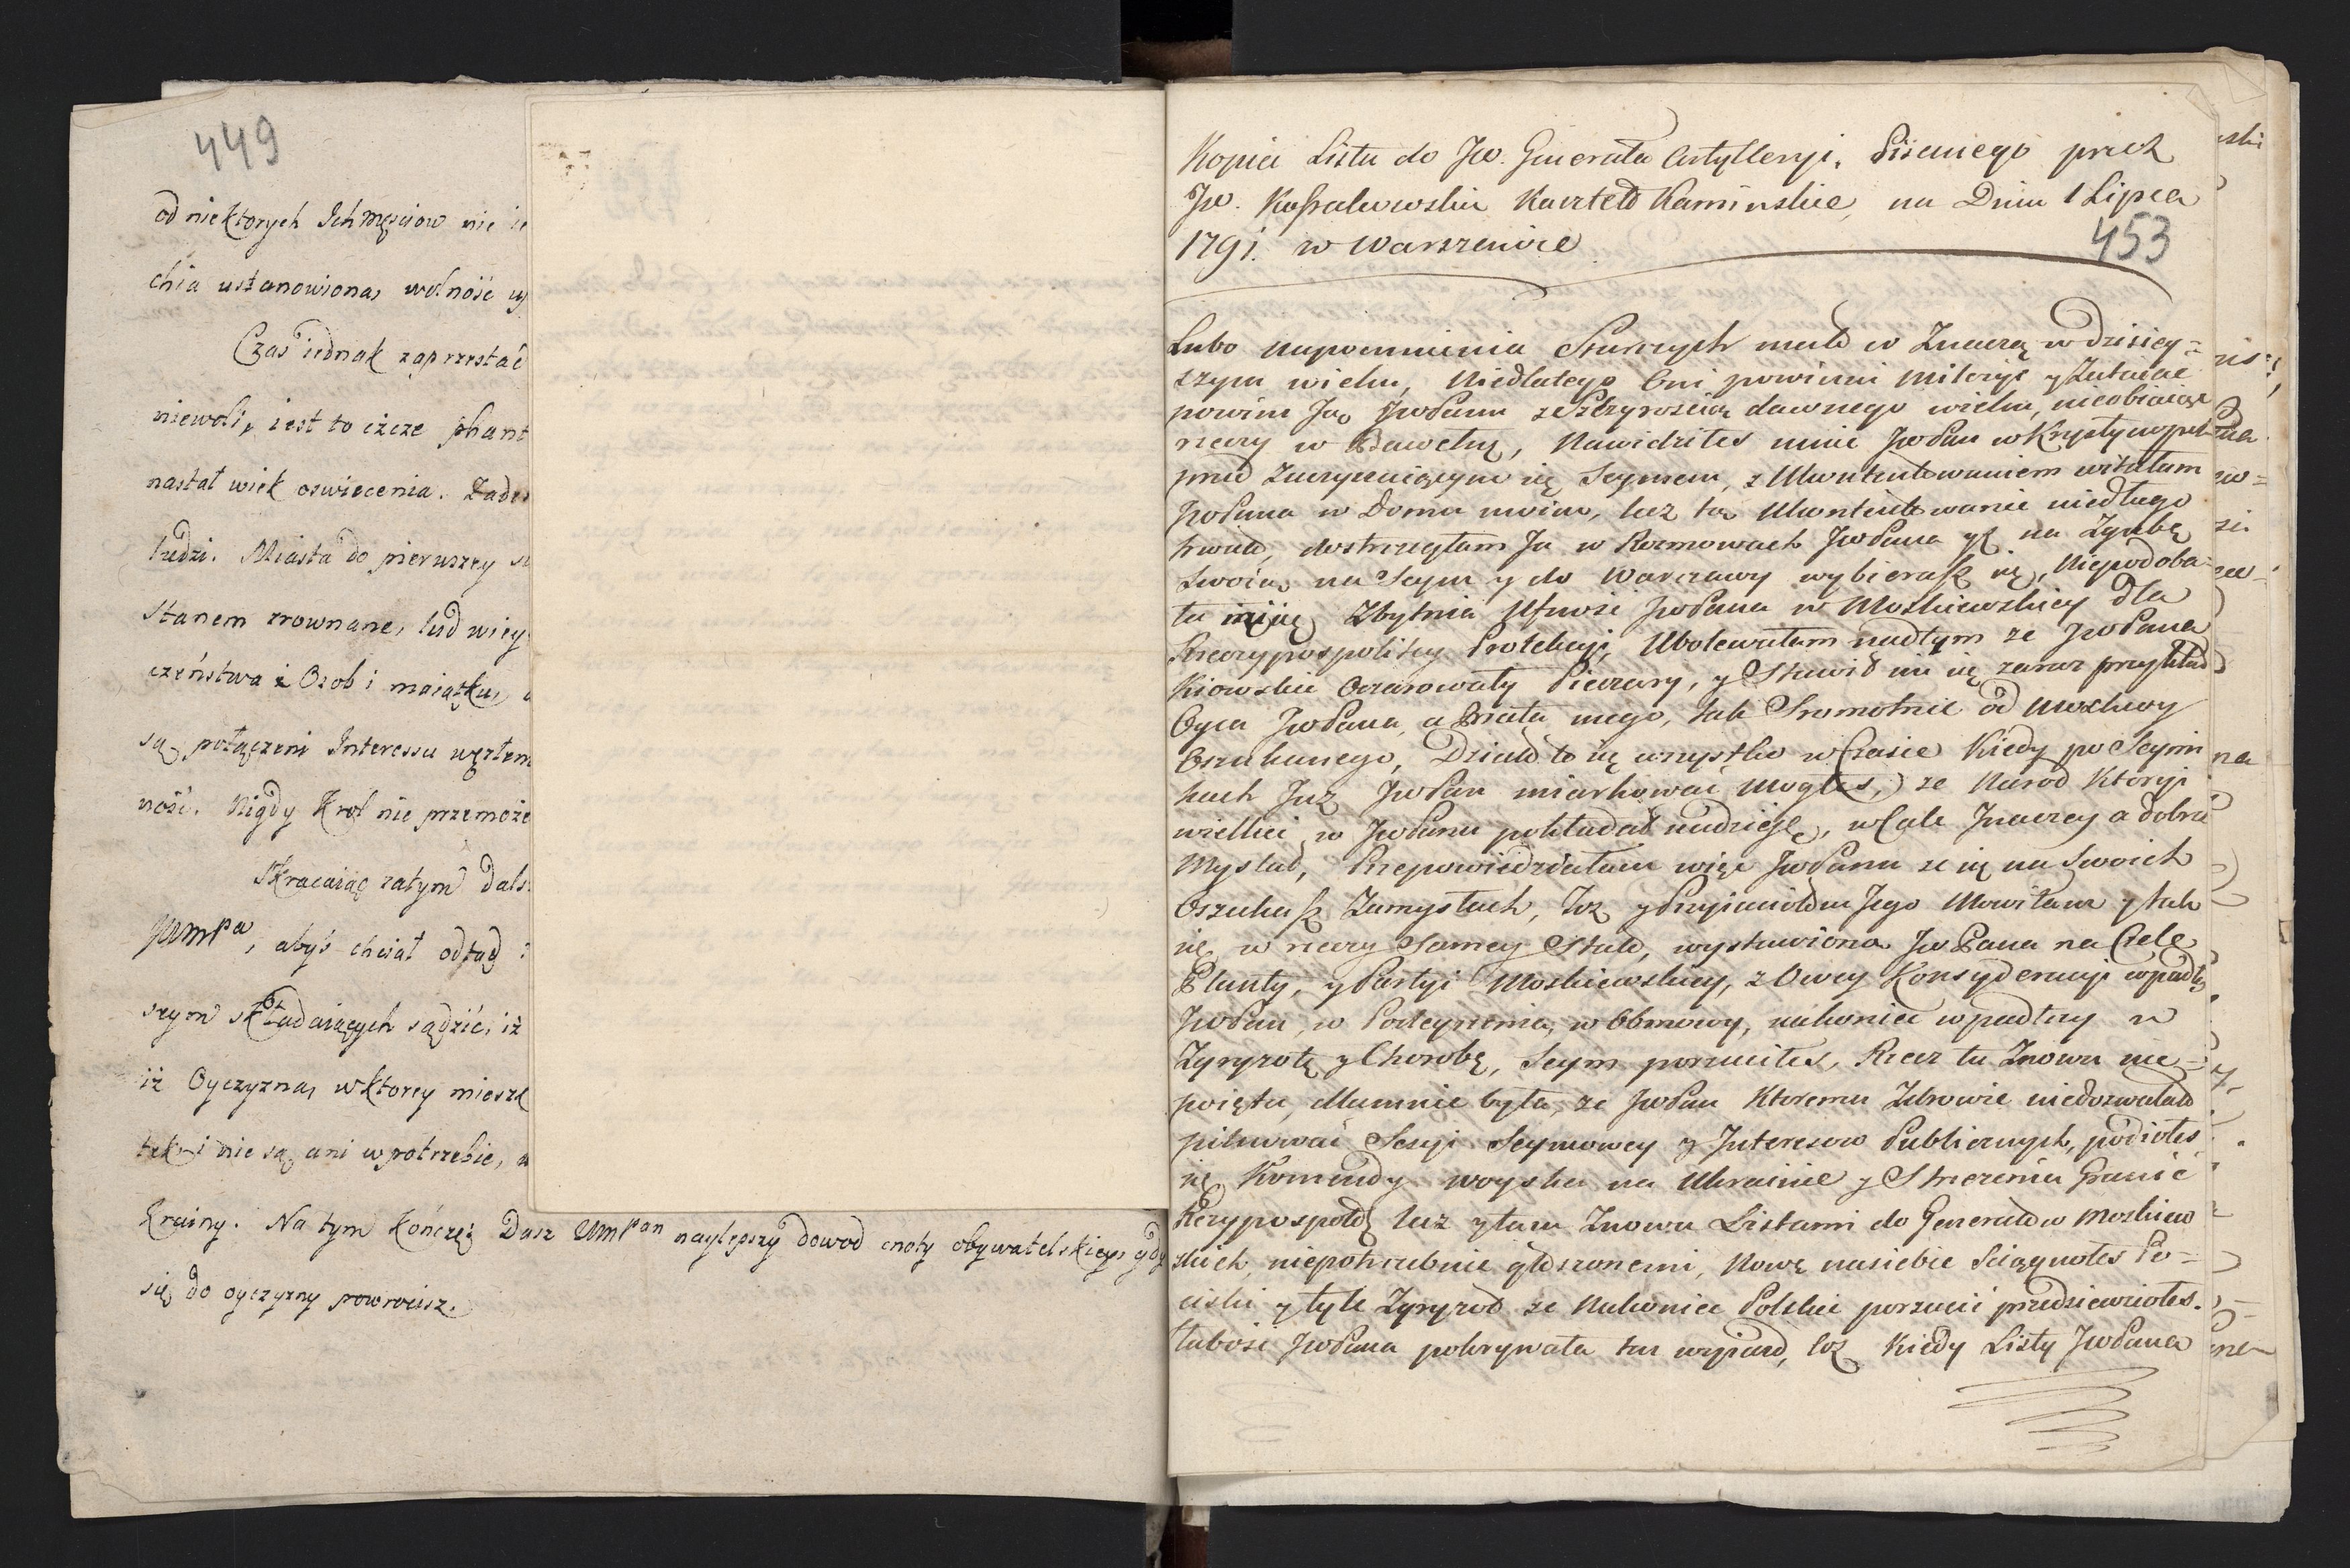 449
od niektorych Ichmęściow nie ie
chia ustanowiona, wolność uy
Czas iednak zaprzestać
niewoli, iest to iżcze phant
nastał wiek oswiecenia. Zade
ludzi. Miasta do pierwszey s
Stanem zrownane, lud wiey
czeństwa i Osob i maiątku, a
są, połączeni Interessu węzłem
ność. Nigdy Krol nie przemoże
Skracaiąc zatym dals
JWmPa, abyś chciał odtąd
szym składaiących sądzić, iż
iż Oyczyzna, w ktorey mieszk
tek i nie są ani w potrzebie, a
Krainy. Na tym kończę: Dasz WmPan naylepszy dowod cnoty obywatelskiey, gdy
się do oyczyzny powrocisz.
Kopia Listu do Jw. Generała Artylleryi, Pisanego przez
Jw. Kossakowską Kasztel Kamińską, na Dniu 1 Lipca
1791. w Warszawie
453
Lubo napomnienia Starych mało w Znaczą w dzisiey=
szym wieku, Niedlatego Oni powinni milczyć y Zataiać
powiem Ja, JwPanu ze Szczyrością dawnego wieku, nieobiaiąc
rzeczy w Bawełnę, Nawidziłeś mnie JwPan w Krystynopolu
przed Zaczynaiącym się Seymem, z Ukontentowaniem witałam
JwPana w Domu moim, lecz to Ukontentowanie niedługo
trwało, dostrzegłam Ja w Rozmowach JwPana yż na Zgubę
Swoią, na Seym y do Warszawy wybierasz się, Niepodoba=
ła mi się Zbytnia Ufność JwPana w Moskiewskiey dla
Rzeczypospolitey Protekcyi, Ubolewałam nadtym ze JwPana
Kiowskie Oczarowały Pieczary, y Stawił mi się zaraz przykład
Oyca JwPana, a Brata mego, tak Sromotnie od Moskwy
Oszukanego, Działo to się wszystko w Czasie Kiedy po Seymi
kach Już JwPan miarkować Mogłeś, ze Narod Ktoryi
wielkie w JwPanu pokładał nadzieię, w Cale Inaczey a dobrze
Myslał, Przepowiedziałam więc JwPanu ze się na Swoich
Oszukasz Zamysłach, Toż y Przyiaciołom Jego Mowiłam y tak
się w rzeczy Samey Stało, wystawiona JwPana na Czele
Planty, y Partyi Moskiewskiey, z Owey Konsyderacyi wpadłeś
JwPan, w Podeyrzenia, w Obmowy, nakoniec wpadłszy w
Zgryzotę y Chorobę, Seym porzuciłeś, Rzecz ta Znowu nie=
poięta, dla mnie była, ze JwPan Ktoremu Zdrowie niedozwalało
pilnować Sesyi Seymowey y Interesow Publicznych, podiołeś
się Komendy woyska na Ukrainie y Strzezenia Granic
Rzeczypospol lecz y tam Znowu Listami do Generałow Moskiew
skich, niepotrzebnie głoszonemi, Nowe nasiebie Sciągnołeś Po=
ciski y tyle Zgryzot ze Nakoniec Polskie porzucić przedsiewziołeś.
Słabość JwPana pokrywała ten wyiazd, Coż Kiedy Listy JwPana